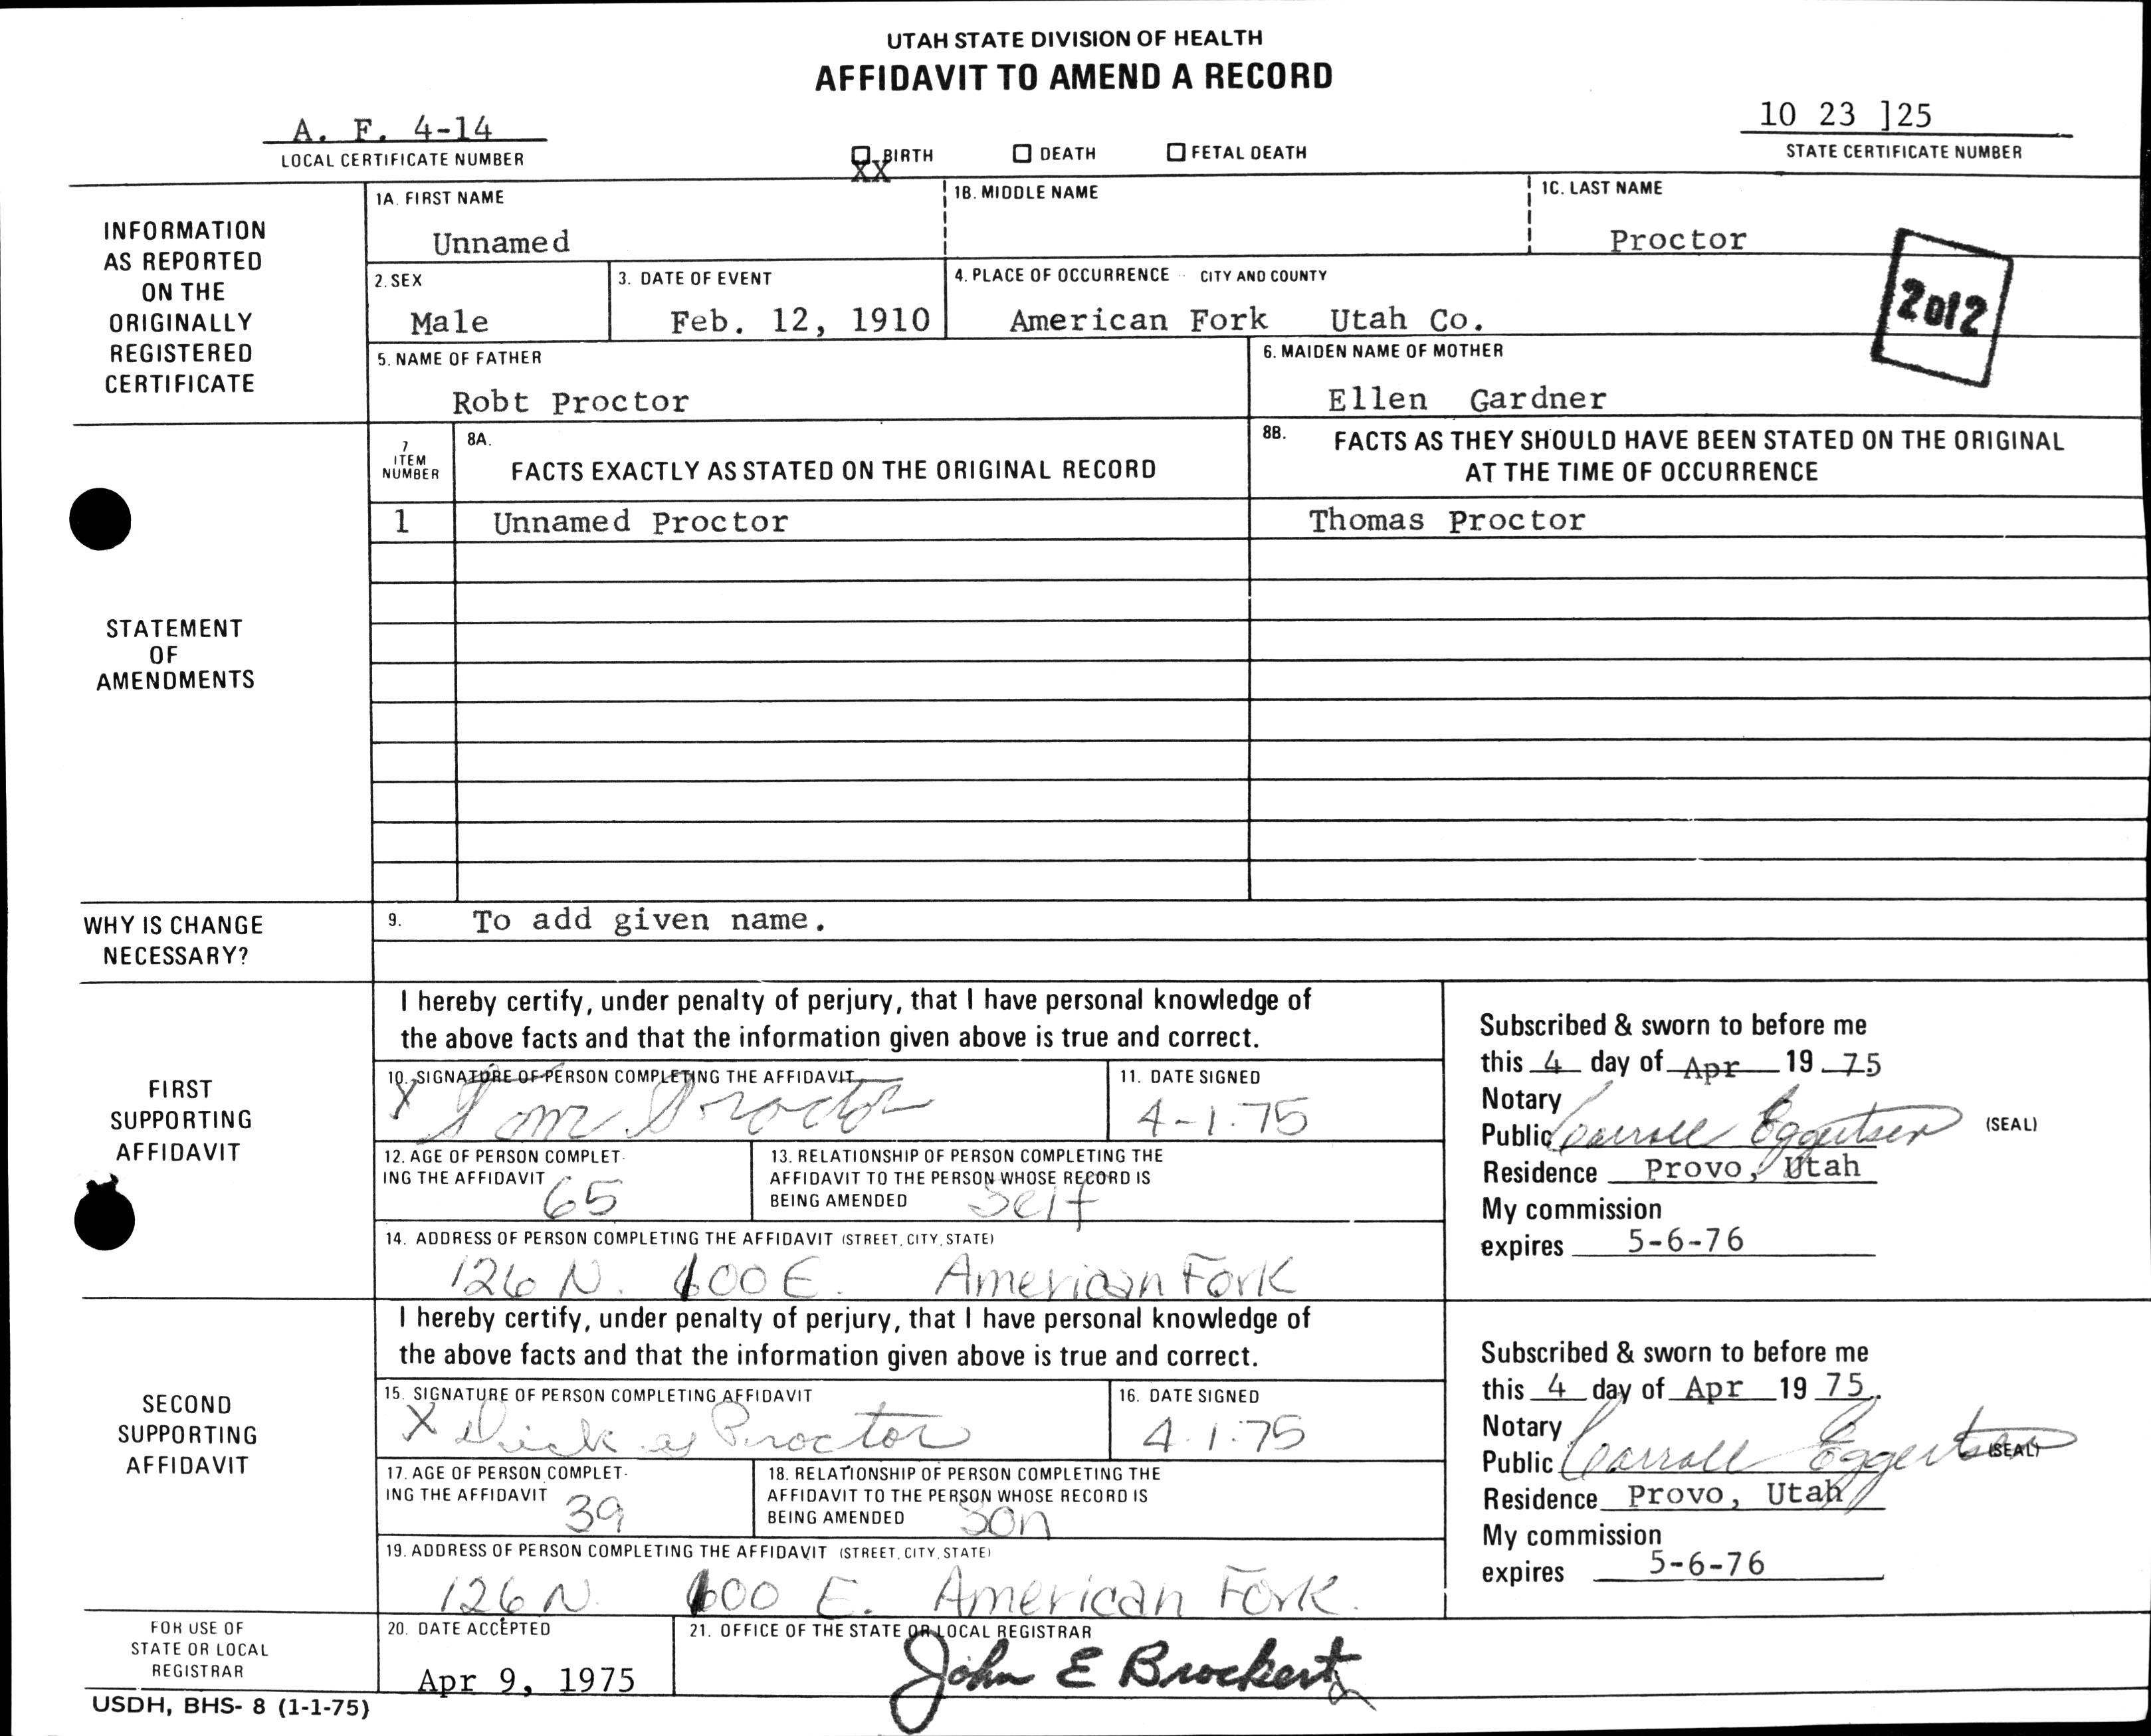 UTAH STATE DIVISION OF HEALTH
AFFIDAVIT TO AMEND A RECORD
A. F. 4-14
LOCAL CERTIFICATE NUMBER
XX BIRTH DEATH FETAL DEATH
10 23 ]25
STATE CERTIFICATE NUMBER
INFORMATION AS REPORTED ON THE ORIGINALLY REGISTERED CERTIFICATE
1A. FIRST NAME 1B. MIDDLE NAME 1C. LAST NAME
Unnamed Proctor
2. SEX 3. DATE OF EVENT 4. PLACE OF OCCURRENCE CITY AND COUNTY
Male Feb. 12, 1910 American Fork Utah Co.
2012
5. NAME OF FATHER 6. MAIDEN NAME OF MOTHER
Robt Proctor Ellen Gardner
STATEMENT OF AMENDMENTS
7 ITEM NUMBER
8A. FACTS EXACTLY AS STATED ON THE ORIGINAL RECORD
8B. FACTS AS THEY SHOULD HAVE BEEN STATED ON THE ORIGINAL
AT THE TIME OF OCCURRENCE
1 Unnamed Proctor Thomas Proctor
WHY IS CHANGE NECESSARY?
9. To add given name.
FIRST SUPPORTING AFFIDAVIT
I hereby certify, under penalty of perjury, that I have personal knowledge of
the above facts and that the information given above is true and correct.
10. SIGNATURE OF PERSON COMPLETING THE AFFIDAVIT 11. DATE SIGNED
X Tom Proctor 4-1-75
12. AGE OF PERSON COMPLET-
ING THE AFFIDAVIT 65
13. RELATIONSHIP OF PERSON COMPLETING THE
AFFIDAVIT TO THE PERSON WHOSE RECORD IS
BEING AMENDED Self
14. ADDRESS OF PERSON COMPLETING THE AFFIDAVIT (STREET, CITY, STATE)
126 N. 100 E. American Fork
Subscribed & sworn to before me
this 4 day of Apr 19 75
Notary
Public Carroll Eggertsen (SEAL)
Residence Provo, Utah
My commission
expires 5-6-76
SECOND SUPPORTING AFFIDAVIT
I hereby certify, under penalty of perjury, that I have personal knowledge of
the above facts and that the information given above is true and correct.
15. SIGNATURE OF PERSON COMPLETING AFFIDAVIT 16. DATE SIGNED
X Dick Proctor 4.1.75
17. AGE OF PERSON COMPLET-
ING THE AFFIDAVIT 39
18. RELATIONSHIP OF PERSON COMPLETING THE
AFFIDAVIT TO THE PERSON WHOSE RECORD IS
BEING AMENDED Son
19. ADDRESS OF PERSON COMPLETING THE AFFIDAVIT (STREET, CITY, STATE)
126 N. 100 E. American Fork.
Subscribed & sworn to before me
this 4 day of Apr 19 75.
Notary
Public Carroll Eggertsen (SEAL)
Residence Provo, Utah
My commission
expires 5-6-76
FOR USE OF STATE OR LOCAL REGISTRAR
20. DATE ACCEPTED 21. OFFICE OF THE STATE OR LOCAL REGISTRAR
Apr 9, 1975 John E Brockert
USDH, BHS- 8 (1-1-75)